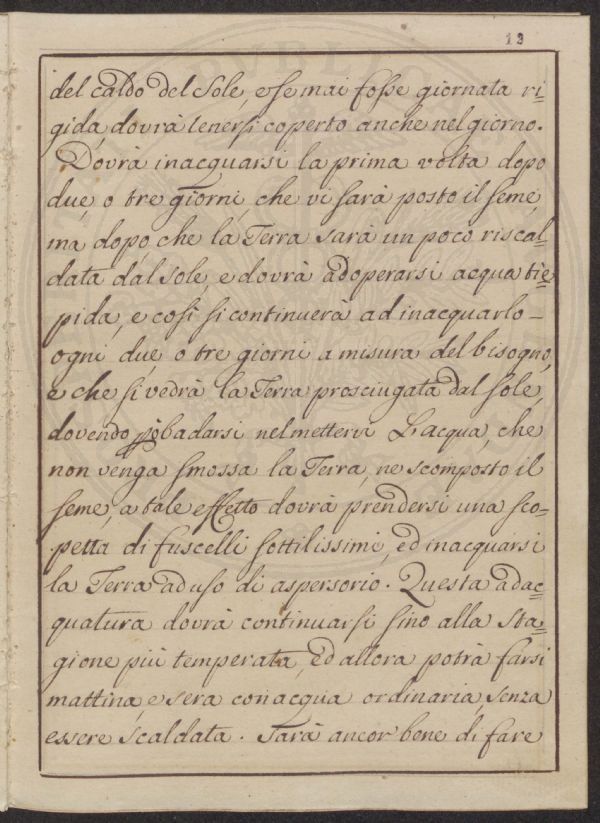 13
del caldo del Sole, e se mai fosse giornata ri=
gida, dovrà tenersi coperto anche nel giorno.
Dovrà inacquarsi la prima volta dopo
due, o tre giorni, che vi sarà posto il seme,
ma dopo, che la Terra sarà un poco riscal=
data dal Sole, e dovrà adoperarsi acqua tie=
pida, e così si continuerà ad inacquarlo –
ogni due, o tre giorni a misura del bisogno,
e che si vedrà la Terra prosciugata dal Sole,
dovendo però badarsi nel mettervi L'acqua, che
non venga smossa la Terra, ne scomposto il
seme, a tale effetto dovrà prendersi una sco=
petta di fuscelli sottilissimi, ed inacquarsi
la Terra ad uso di aspersorio. Questa adac=
quatura dovrà continuarsi sino alla sta=
gione più temperata, ed allora potrà farsi
mattina, e sera con acqua ordinaria, senza
essere scaldata. Sarà ancor bene di fare
PVBLICA